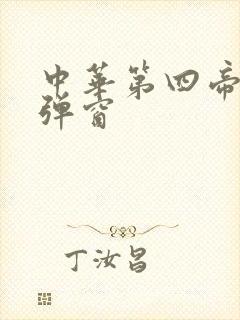 中华第四帝
弹窗
丁汝昌